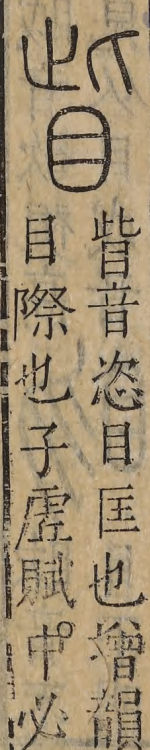 眥
眥音恣目匡也增韻
目際也子虛賦中必